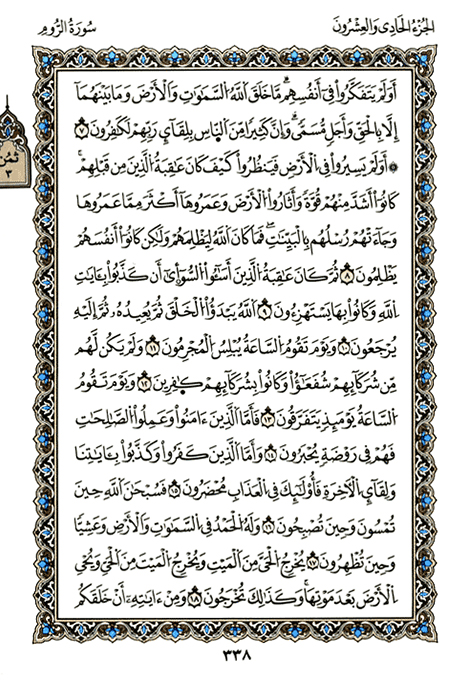 الجُزْءُ الحَادِى وَالعِشْرُونَ
سُورَةُ الرُّومِ
أَوَلَمْ يَتَفَكَّرُوا۟ فِىٓ أَنفُسِهِم ۗ مَّا خَلَقَ ٱللَّهُ ٱلسَّمَٰوَٰتِ وَٱلْأَرْضَ وَمَا بَيْنَهُمَآ
إِلَّا بِٱلْحَقِّ وَأَجَلٍ مُّسَمًّى ۗ وَإِنَّ كَثِيرًا مِّنَ ٱلنَّاسِ بِلِقَآىِٕ رَبِّهِمْ لَكَٰفِرُونَ ٧
۞ أَوَلَمْ يَسِيرُوا۟ فِى ٱلْأَرْضِ فَيَنظُرُوا۟ كَيْفَ كَانَ عَٰقِبَةُ ٱلَّذِينَ مِن قَبْلِهِمْ ۚ
كَانُوٓا۟ أَشَدَّ مِنْهُمْ قُوَّةً وَأَثَارُوا۟ ٱلْأَرْضَ وَعَمَرُوهَآ أَكْثَرَ مِمَّا عَمَرُوهَا
وَجَآءَتْهُمْ رُسْلُهُم بِٱلْبَيِّنَٰتِ ۖ فَمَا كَانَ ٱللَّهُ لِيَظْلِمَهُمْ وَلَٰكِن كَانُوٓا۟ أَنفُسَهُمْ
يَظْلِمُونَ ٨ ثُمَّ كَانَ عَٰقِبَةُ ٱلَّذِينَ أَسَٰٓـُٔوا۟ ٱلسُّوٓأَىٰٓ أَن كَذَّبُوا۟ بِـَٔايَٰتِ
ٱللَّهِ وَكَانُوا۟ بِهَا يَسْتَهْزِءُونَ ٩ ٱللَّهُ يَبْدَؤُا۟ ٱلْخَلْقَ ثُمَّ يُعِيدُهُۥ ثُمَّ إِلَيْهِ
يُرْجَعُونَ ١٠ وَيَوْمَ تَقُومُ ٱلسَّاعَةُ يُبْلِسُ ٱلْمُجْرِمُونَ ١١ وَلَمْ يَكُن لَّهُم
مِّن شُرَكَآئِهِمْ شُفَعَٰٓؤُا۟ وَكَانُوا۟ بِشُرَكَآئِهِمْ كَٰفِرِينَ ١٢ وَيَوْمَ تَقُومُ
ٱلسَّاعَةُ يَوْمَئِذٍ يَتَفَرَّقُونَ ١٣ فَأَمَّا ٱلَّذِينَ ءَامَنُوا۟ وَعَمِلُوا۟ ٱلصَّٰلِحَٰتِ
فَهُمْ فِى رَوْضَةٍ يُحْبَرُونَ ١٤ وَأَمَّا ٱلَّذِينَ كَفَرُوا۟ وَكَذَّبُوا۟ بِـَٔايَٰتِنَا
وَلِقَآىِٕ ٱلْأَخِرَةِ فَأُو۟لَٰٓئِكَ فِى ٱلْعَذَابِ مُحْضَرُونَ ١٥ فَسُبْحَٰنَ ٱللَّهِ حِينَ
تُمْسُونَ وَحِينَ تُصْبِحُونَ ١٦ وَلَهُ ٱلْحَمْدُ فِى ٱلسَّمَٰوَٰتِ وَٱلْأَرْضِ وَعَشِيًّا
وَحِينَ تُظْهِرُونَ ١٧ يُخْرِجُ ٱلْحَىَّ مِنَ ٱلْمَيْتِ وَيُخْرِجُ ٱلْمَيْتَ مِنَ ٱلْحَىِّ وَيُحْىِ
ٱلْأَرْضَ بَعْدَ مَوْتِهَا ۚ وَكَذَٰلِكَ تُخْرَجُونَ ١٨ وَمِنْ ءَايَٰتِهِۦٓ أَنْ خَلَقَكُم
ثُمُن
٣
٣٣٨